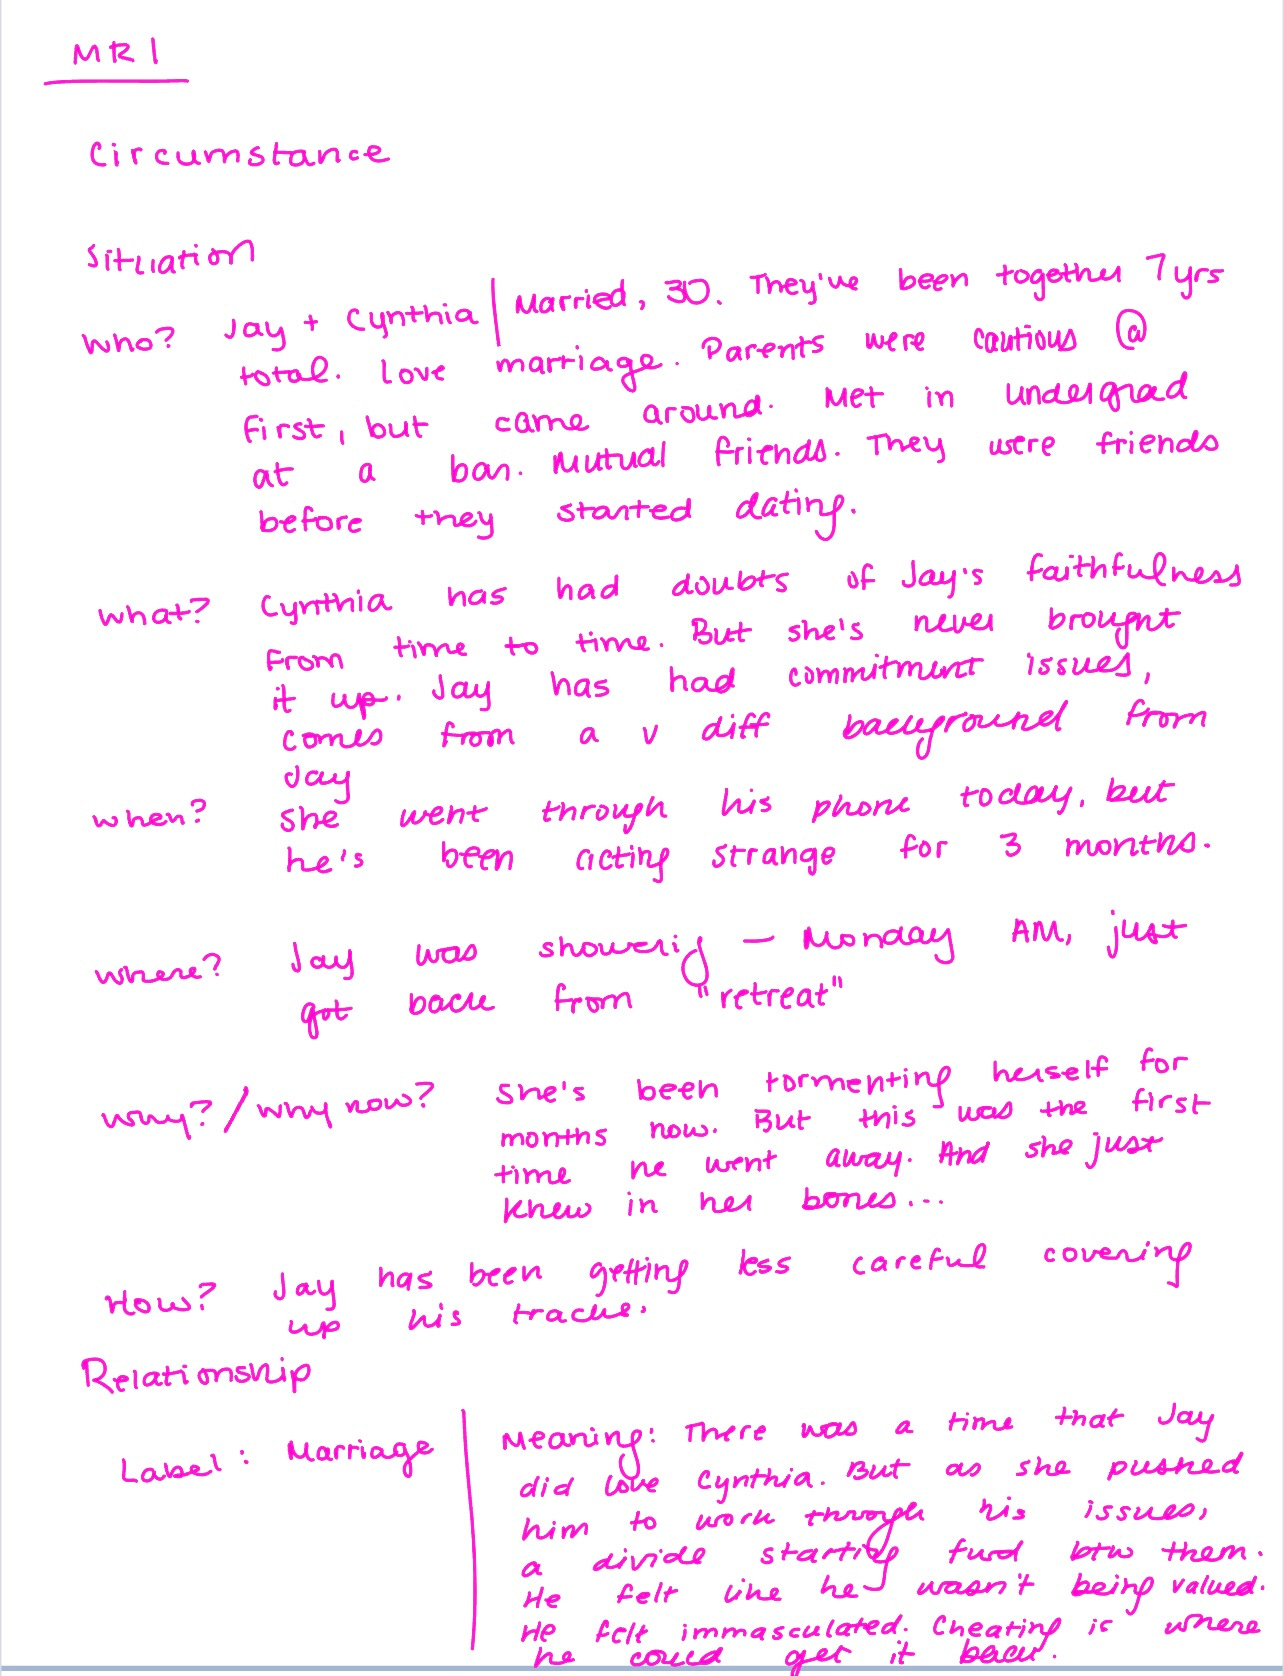 MR 1
Circumstance
Situation
Who? Jay + Cynthia | Married, 30. They've been together 7 yrs
total. Love marriage. Parents were cautious @
first, but came around. Met in undergrad
at a bar. Mutual friends. They were friends
before they started dating.
What? Cynthia has had doubts of Jay's faithfulness
from time to time. But she's never brought
it up. Jay has had commitment issues,
comes from a v diff background from
Jay
When? She went through his phone today, but
he's been acting strange for 3 months.
Where? Jay was showering — Monday AM, just
got back from "retreat"
Why? / Why now? She's been tormenting herself for
months now. But this was the first
time he went away. And she just
knew in her bones...
How? Jay has been getting less careful covering
up his tracks.
Relationship
Label: Marriage | Meaning: There was a time that Jay
did love Cynthia. But as she pushed
him to work through his issues,
a divide starting btw them.
He felt like he wasn't being valued.
He felt immasculated. Cheating is where
he could get it back.